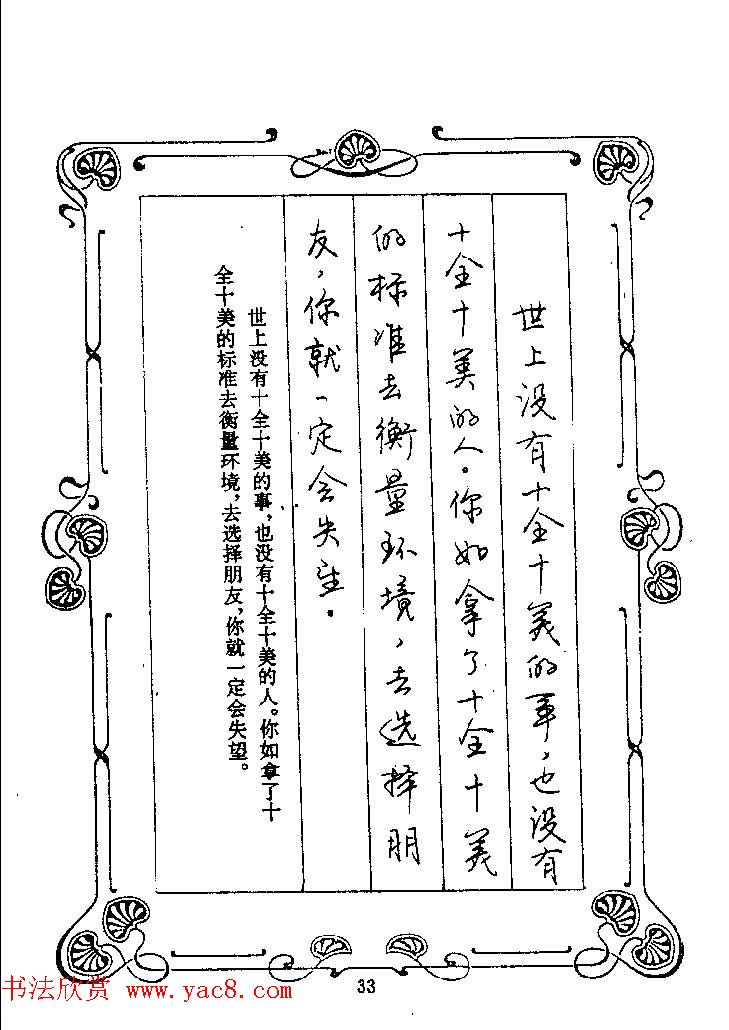 世上没有十全十美的事，也没有
十全十美的人。你如拿了十全十美
的标准去衡量环境，去选择朋
友，你就一定会失望。
世上没有十全十美的事，也没有十全十美的人。你如拿了十
全十美的标准去衡量环境，去选择朋友，你就一定会失望。
33
书法欣赏 www.yac8.com